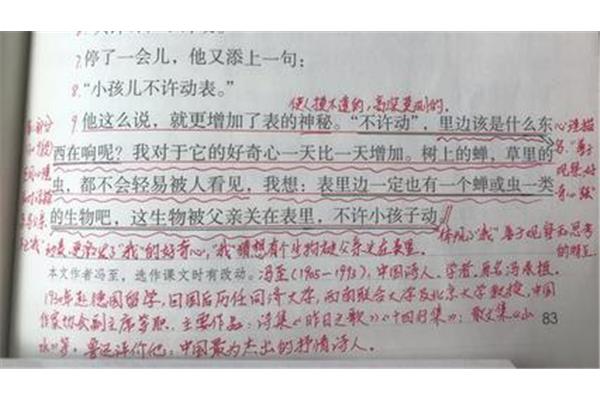 7.停了一会儿，他又添上一句：
8.“小孩儿不许动表。”
使人摸不透的，高深莫测的。
9.他这么说，就更增加了表的神秘。“不许动”，里边该是什么东
西在响呢？我对于它的好奇心一天比一天增加。树上的蝉，草里的
虫，都不会轻易被人看见，我想：表里边一定也有一个蝉或虫一类
的生物吧，这生物被父亲关在表里，不许小孩子动。
心理描
奇心强”
体现了“我”善于观察和思考
的好奇心，“我”猜想有个生物被父亲关在表里。
本文作者冯至，选作课文时有改动。冯至(1905—1993)，中国诗人、学者，原名冯承植，
1930年赴德国留学，回国后历任同济大学，西南联合大学及北京大学教授，中国
作家协会副主席等职。主要作品：诗集《昨日之歌》《十四行集》；散文集《山
水》等，鲁迅评价他：中国最为杰出的抒情诗人。
83